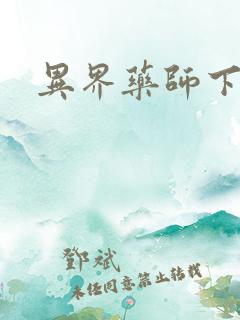 異界藥師下
鄧斌
未經同意禁止轉載